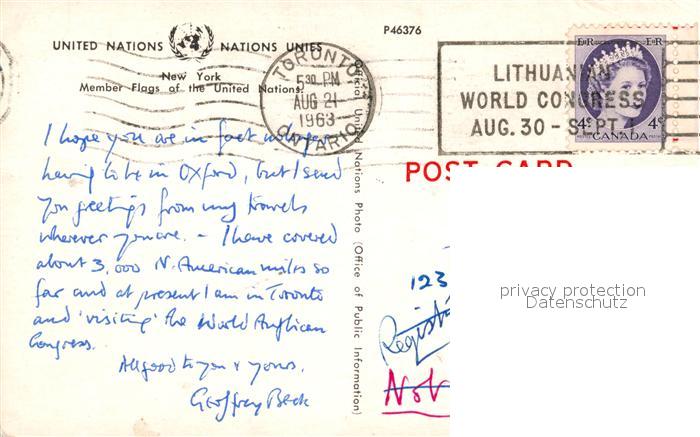 UNITED NATIONS NATIONS UNIES
New York
Member Flags of the United Nations.
P46376
TORONTO
5 30 PM
AUG 21
1963
ONTARIO
LITHUANIAN
WORLD CONGRESS
AUG. 30 - SEPT. 1
E II R E II R
4¢ 4¢
CANADA
POST CARD
Official United Nations Photo (Office of Public Information)
I hope you are in fact
having to be in Oxford, but I send
you greetings from my travels
wherever you are. - I have covered
about 3,000 N. American miles so
far and at present I am in Toronto
and 'visiting' the World Anglican
Congress.
All good to you & yours,
Geoffrey Beck
123
Regist
Not
privacy protection
Datenschutz